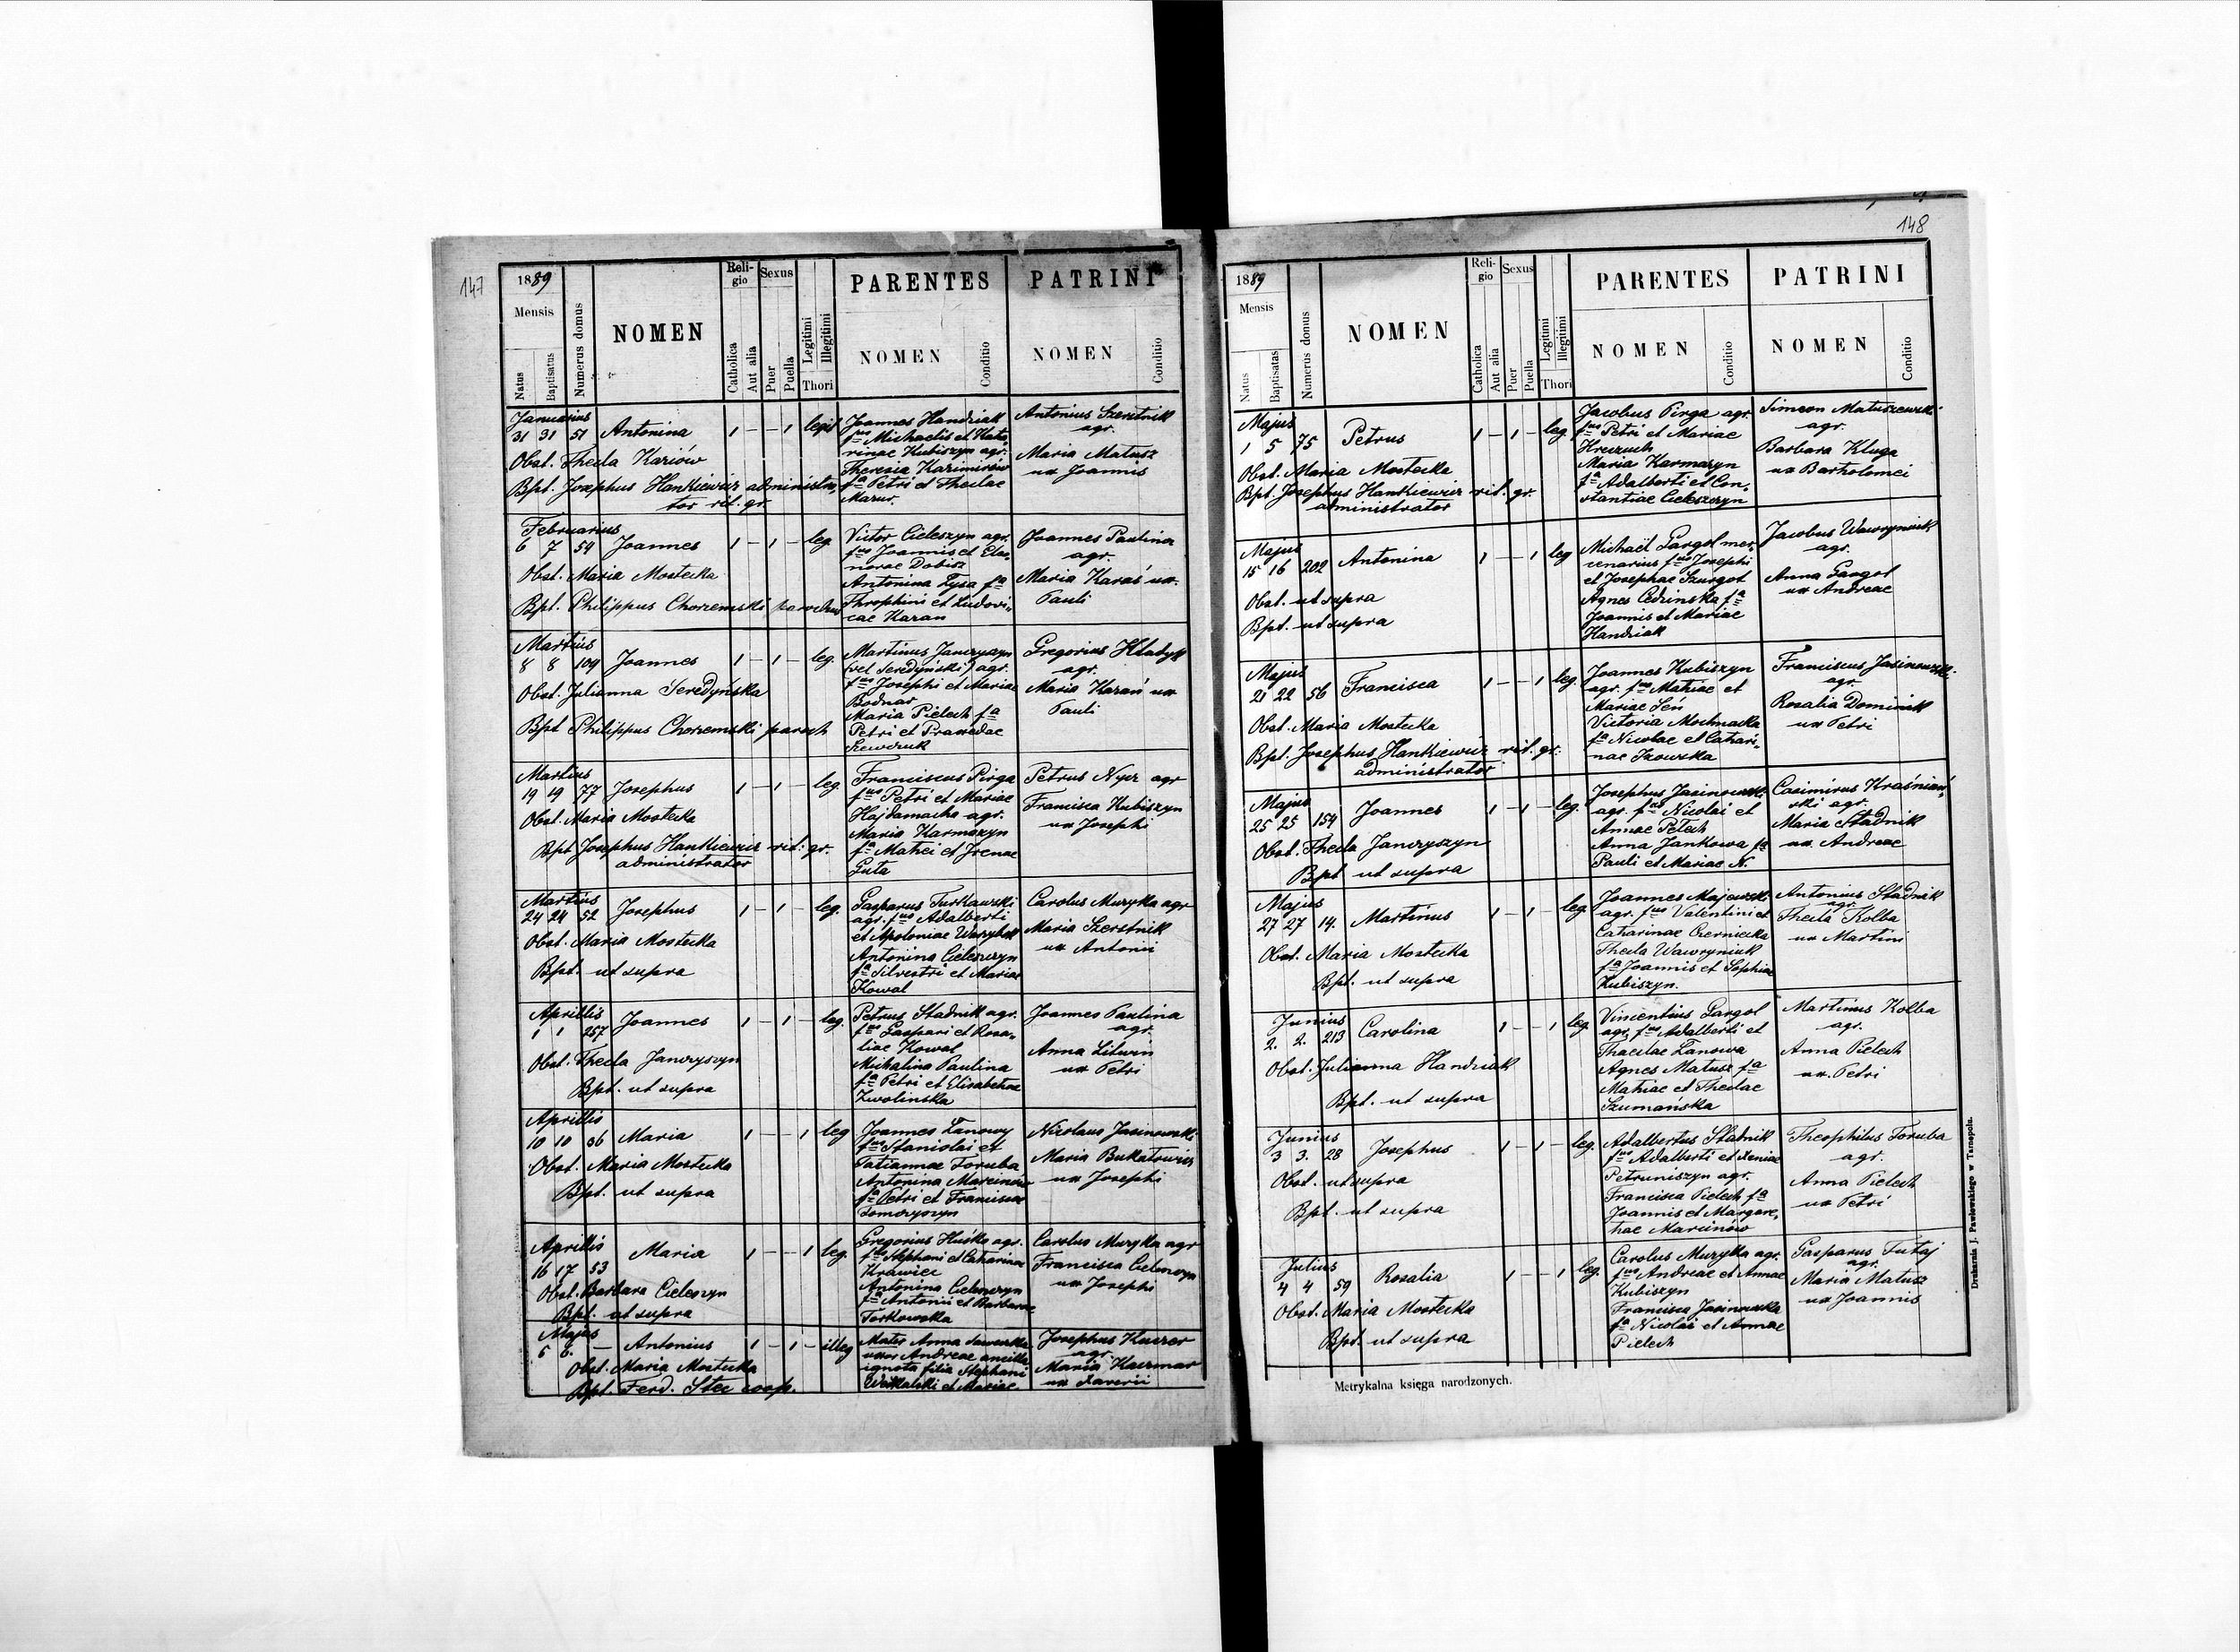 147
1889
Mensis
Natus
Baptisatus
Numerus domus
NOMEN
Reli-
gio
Catholica
Aut alia
Sexus
Puer
Puella
Legitimi
Illegitimi
Thori
PARENTES
NOMEN
Conditio
PATRINI
NOMEN
Conditio
Januarius
31 31 51 Antonina 1 – – 1 legit
Obst. Thecla Kariów
Bpt. Josephus Hankiewicz administra-
tor rit. gr.
Joannes Handziak
fus Michaelis et Kata-
rinae Kubiszyn agr.
Theresia Kazimirów
fa Petri et Theclae
Mazur.
Antonius Szerstnik
agr.
Maria Matusz
ux Joannis
Februarius
6 7 54 Joannes 1 – 1 – leg
Obst. Maria Mostecka
Bpt. Philippus Chorzemski parochus
Victor Cieleszyn agr.
fus Joannis et Eleo-
norae Dobisz
Antonina Lysa fa
Throphini et Ludovi-
cae Karan
Joannes Paulina
agr.
Maria Karaś ux.
Pauli
Martius
8 8 109 Joannes 1 – 1 – leg.
Obst. Julianna Seredyńska
Bpt Philippus Chorzemski paroch
Martinus Janczyszyn
(vel Seredyński) agr.
fus Josephi et Mariae
Bodnar
Maria Pielech fa
Petri et Praxedae
Szewczuk
Gregorius Hladyk
agr.
Maria Karań ux
Pauli
Martius
19 19 77 Josephus 1 – 1 – leg.
Obst. Maria Mostecka
Bpt Josephus Hankiewicz rit: gr.
administrator
Franciscus Pirga
fus Petri et Mariae
Hajdamacha agr.
Maria Karmazyn
fa Mathei et Irenae
Guta
Petrus Nycz agr
Francisca Kubiszyn
ux Josephi
Martius
24 24 52 Josephus 1 – 1 – leg.
Obst. Maria Mostecka
Bpt. ut supra
Gasparus Turkawski
agr. fus Adalberti
et Apoloniae
Antonina Cieleszyn
fa Silvestri et Mariae
Kowal
Carolus Muzyka agr
Maria Szerstnik
ux Antonii
Aprillis
1 1 257 Joannes 1 – 1 – leg.
Obst. Thecla Janczyszyn
Bpt. ut supra
Petrus Stadnik agr.
fus Gaspari et Rosa-
liae Kowal
Michalina Paulina
fa Petri et Elisabethae
Zwolinska
Joannes Paulina
agr.
Anna Litwin
ux Petri
Aprillis
10 10 36 Maria 1 – – 1 leg
Obst. Maria Mostecka
Bpt. ut supra
Joannes Lanowy
fus Stanislai et
Tatiannae Toruba
Antonina Marcinów
fa Petri et Franciscae
Tomczyszyn
Nicolaus Jasinowski
Maria Bukatowicz
ux Josephi
Aprillis
16 17 53 Maria 1 – – 1 leg.
Obst. Barbara Cieleszyn
Bpt. ut supra
Gregorius Huśko agr.
fus Stephani et Catharinae
Krawiec
Antonina Cieleszyn
fa Antonii et Barbarae
Torkowska
Carolus Muzyka agr
Francisca Cieleszyn
ux Josephi
Majus
5 8. – Antonius 1 – 1 – illeg
Obst. Maria Mostecka
Bpt Ferd. Stec coop.
Mater Anna
uxor Andreae ancilla
ignota filia Stephani
et Mariae
Josephus Kuczer
agr.
Maria Kaczmar
ux Xaverii
148
1889
Mensis
Natus
Baptisatas
Numerus domus
NOMEN
Reli-
gio
Catholica
Aut alia
Sexus
Puer
Puella
Legitimi
Illegitimi
Thori
PARENTES
NOMEN
Conditio
PATRINI
NOMEN
Conditio
Majus
1 5 75 Petrus 1 – 1 – leg
Obst. Maria Mostecka
Bpt. Josephus Hankiewicz rit. gr.
administrator
Jacobus Pirga agr.
fus Petri et Mariae
Hreczuch
Maria Karmazyn
fa Adalberti et Con-
stantiae Cieleszczyn
Simeon Matuszewski
agr.
Barbara Kluga
ux Bartholomei
Majus
15 16 202 Antonina 1 – – 1 leg
Obst. ut supra
Bpt. ut supra
Michaël Gargol mer-
cenarius fus Josephi
et Josephae Szurgot
Agnes Cedzinska fa
Joannis et Mariae
Handziak
Jacobus Wawryniuk
agr.
Anna Gargol
ux Andreae
Majus
21 22 56 Francisca 1 – – 1 leg.
Obst. Maria Mostecka
Bpt. Josephus Hankiewicz rit. gr.
administrator
Joannes Kubiszyn
agr. fus Mathiae et
Mariae Seń
Victoria Mochnacka
fa Nicolae et Cathari-
nae Izowska
Franciscus Jasinowski
agr.
Rosalia Dominik
ux Petri
Majus
25 25 154 Joannes 1 – 1 – leg.
Obst. Thecla Janczyszyn
Bpt ut supra
Josephus Jasinowski
agr. fus Nicolai et
Annae Petech
Anna Jankowa fa
Pauli et Mariae N.
Casimirus Kraśniań-
ski agr.
Maria Stadnik
ux. Andreae
Majus
27 27 14. Martinus 1 – 1 – leg
Obst. Maria Mostecka
Bpt. ut supra
Joannes Majewski
agr. fus Valentini et
Catharinae Czernicka
Thecla Wawryniuk
fa Joannis et Sophiae
Kubiszyn.
Antonius Stadnik
agr.
Thecla Kolba
ux Martini
Junius
2. 2. 213 Carolina 1 – – 1 leg
Obst. Julianna Handziak
Bpt. ut supra
Vincentius Gargol
agr. fus Adalberti et
Thaeclae Lanowa
Agnes Matusz fa
Mathiae et Theclae
Szumańska
Martinus Kolba
agr.
Anna Pielech
ux. Petri
Junius
3 3. 28 Josephus 1 – 1 – leg.
Obst. ut supra
Bpt. ut supra
Adalbertus Stadnik
fus Adalberti et Xeniae
Petruniszyn agr.
Francisca Pielech fa
Joannis et Margare-
thae Marcinów
Theophilus Toruba
agr.
Anna Pielech
ux Petri
Julius
4 4 59 Rosalia 1 – – 1 leg.
Obst. Maria Mostecka
Bpt. ut supra
Carolus Muzyka agr.
fus Andreae et Annae
Kubiszyn
Francisca Jasinowska
fa Nicolai et Annae
Pielech
Gasparus Tutaj
agr.
Maria Matusz
ux Joannis
Metrykalna księga narodzonych.
Drukarnia J. Pawłowskiego w Tarnopolu.